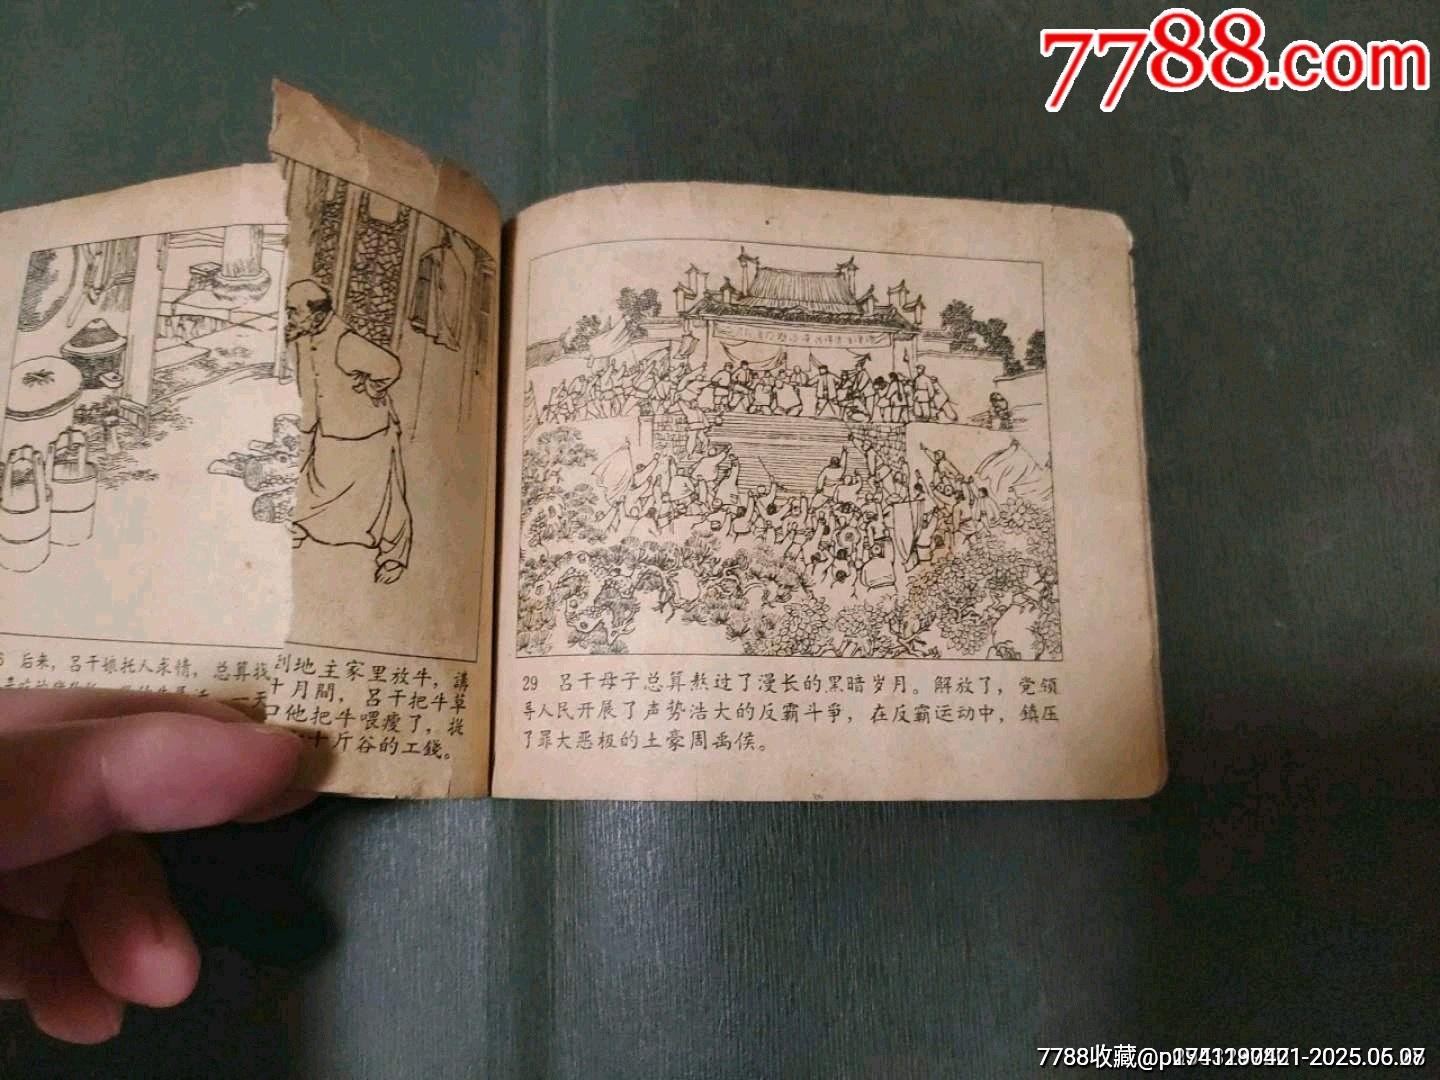 7788.com
后来，吕干娘托人求情，总算找
到地主家里放牛，講
一天
十月間，吕干把牛草
他把牛喂瘦了，從
十斤谷的工錢。
29 吕干母子总算熬过了漫长的黑暗岁月。解放了，党领
导人民开展了声势浩大的反霸斗爭，在反霸运动中，鎮压
了罪大恶极的土豪周禹侯。
7788收藏